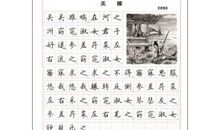 关雎
《诗经》
关关雎鸠在河之
洲窈窕淑女君子
好逑参差荇菜左
右流之窈窕淑女
寤寐求之求之不得寤寐思服
悠哉悠哉辗转反侧参差荇菜
左右采之窈窕淑女琴瑟友之
参差荇菜左右芼之窈窕淑女
钟鼓乐之